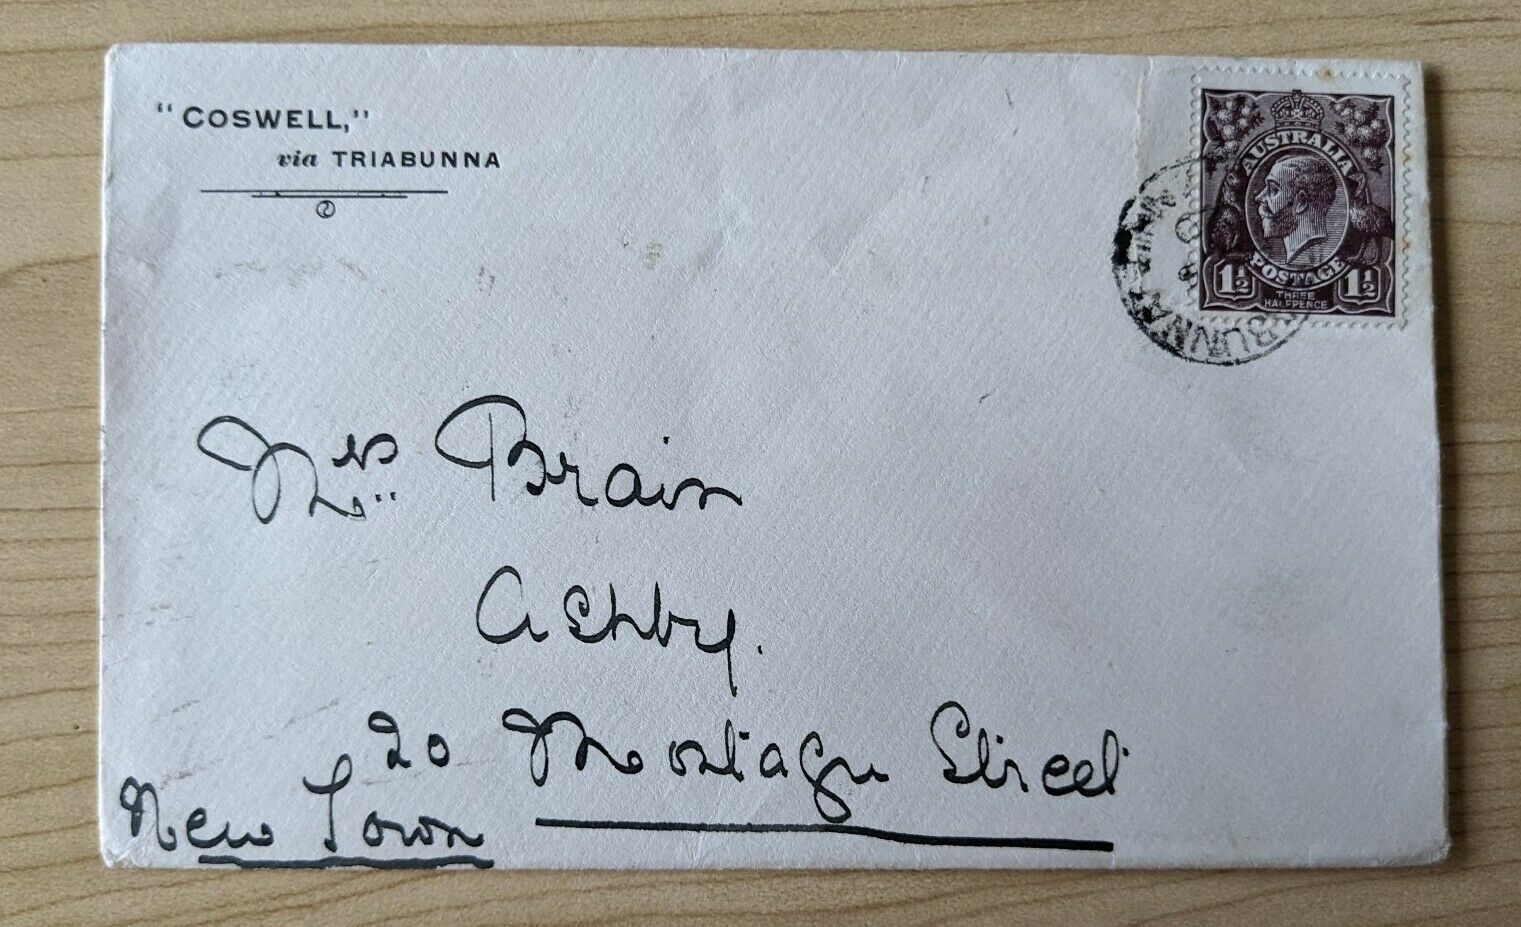 "COSWELL,"
via TRIABUNNA
AUSTRALIA
POSTAGE
1½ 1½
THREE
HALFPENCE
BUNNA
Mrs Brain
Ashby.
20 Montagu Street
New Town